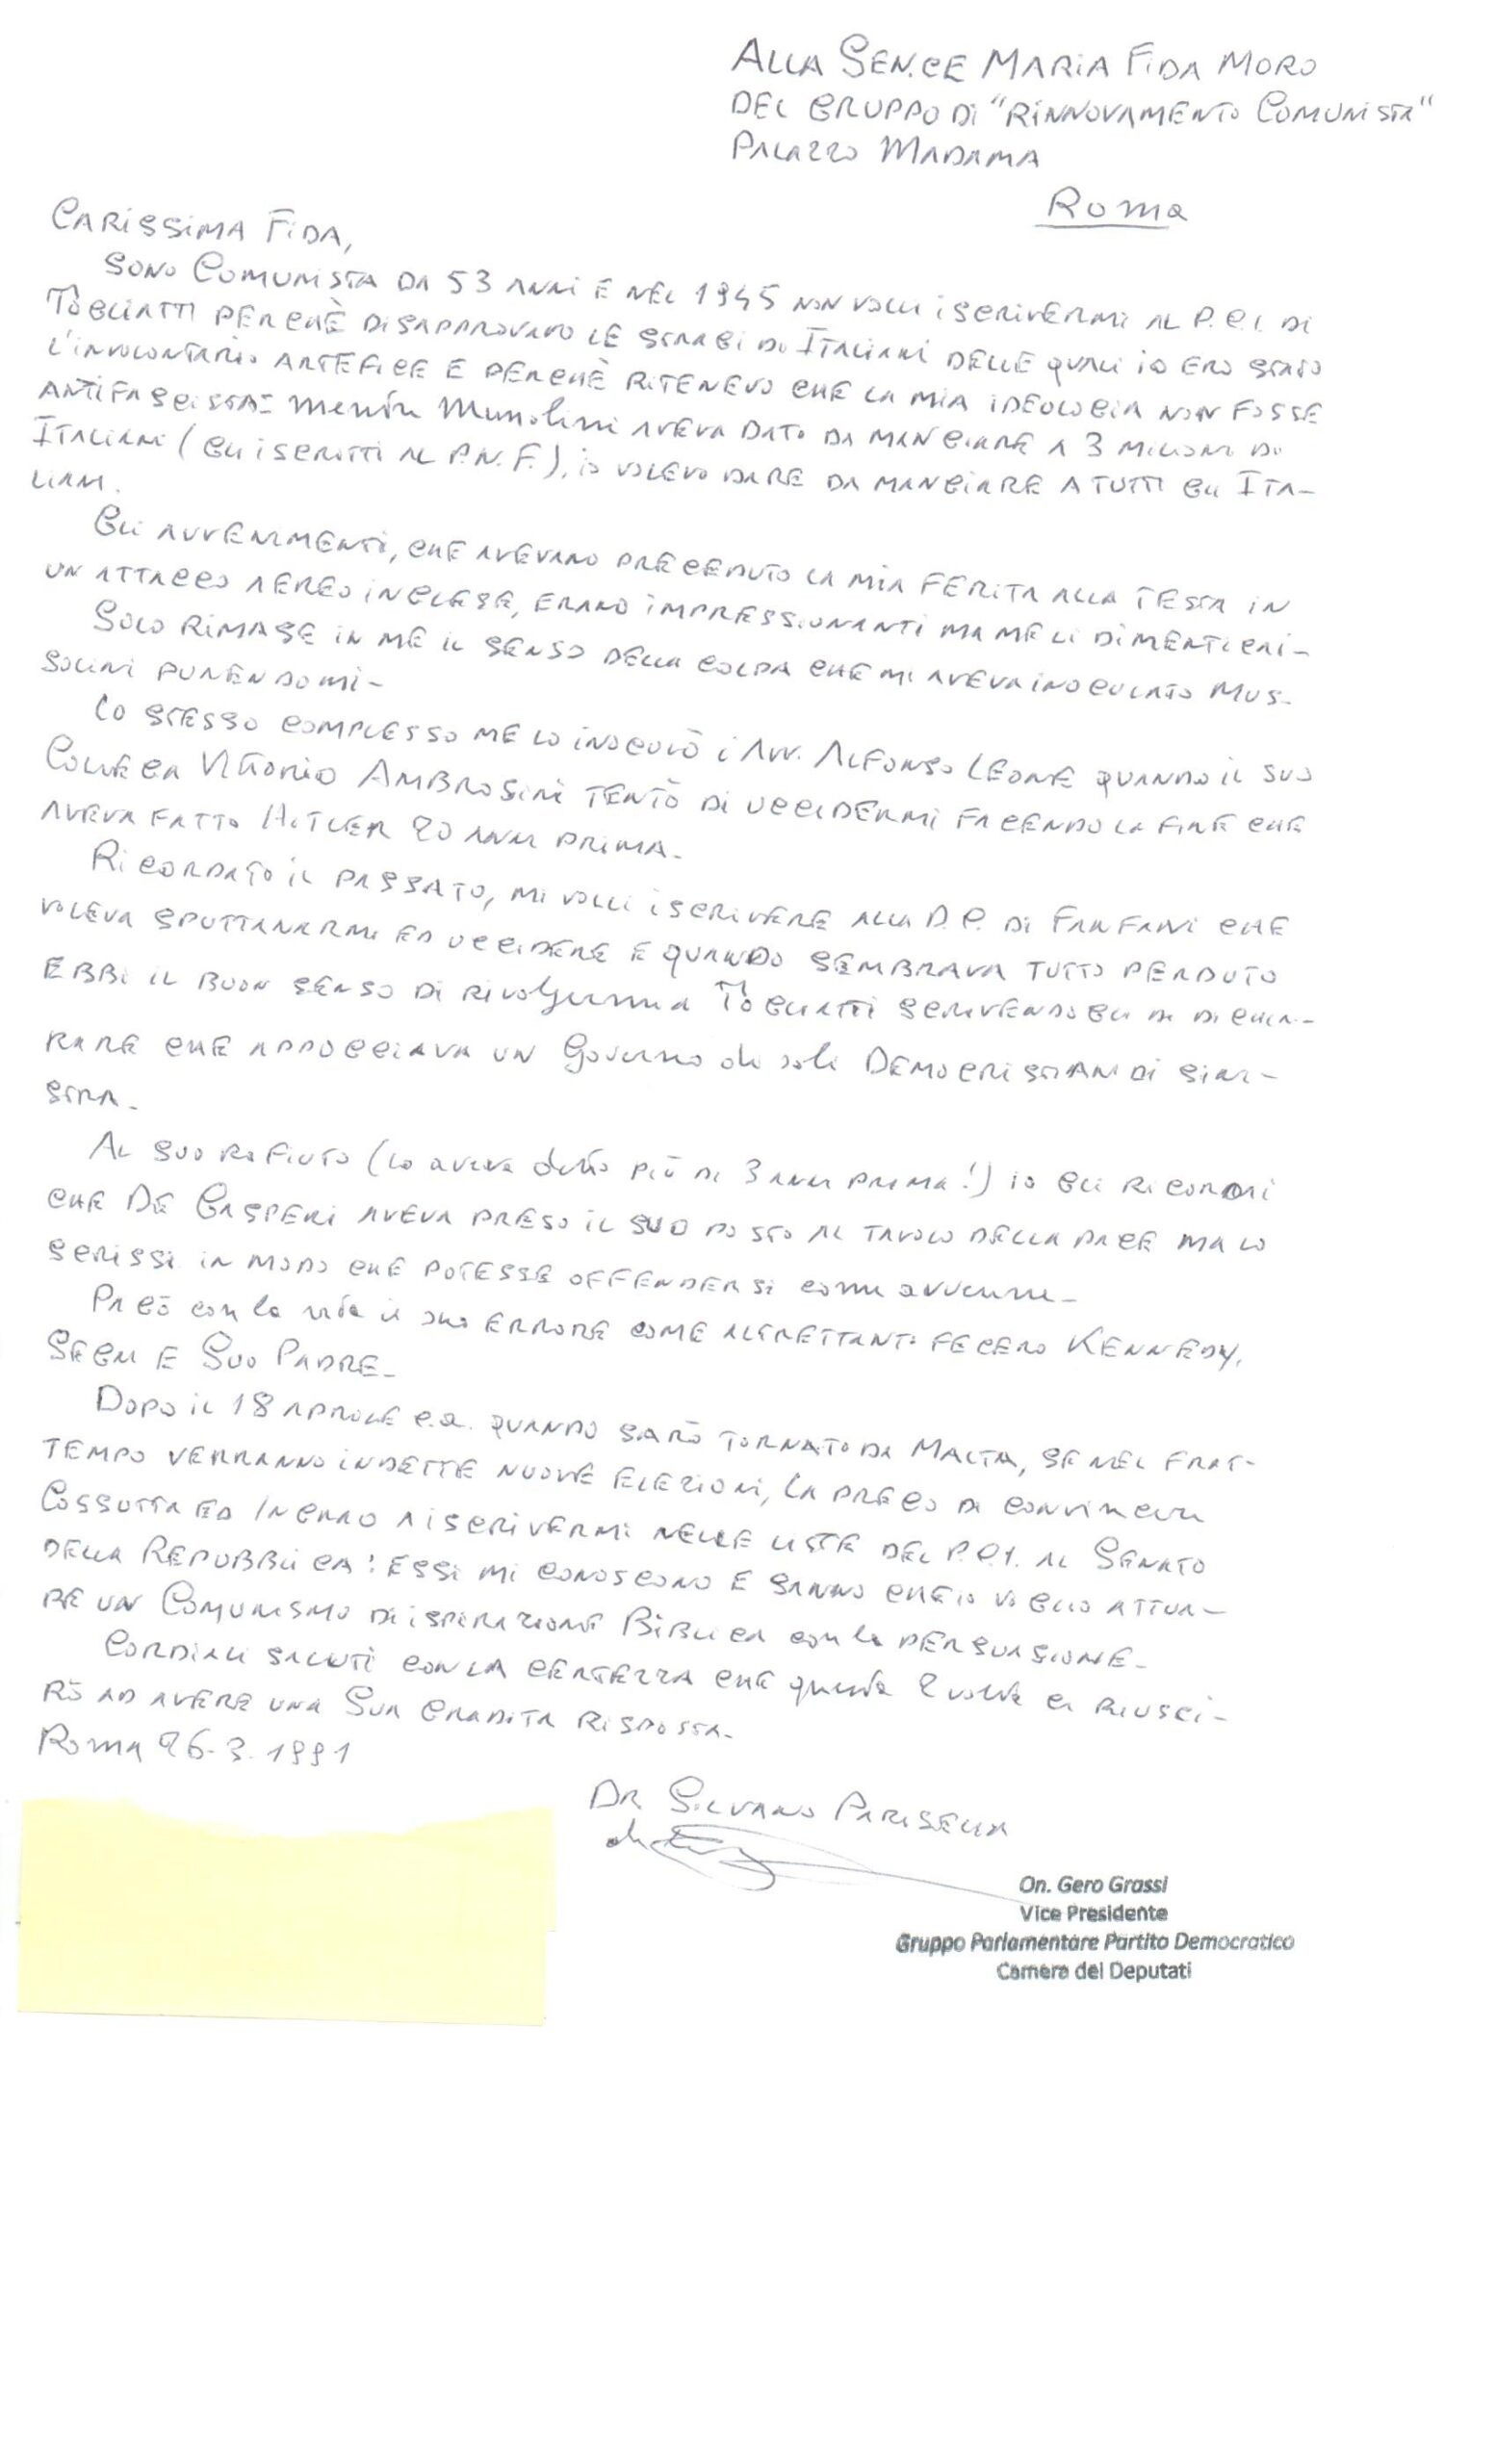 ALLA SEN.CE MARIA FIDA MORO
DEL GRUPPO DI "RINNOVAMENTO COMUNISTA"
PALAZZO MADAMA
ROMA
CARISSIMA FIDA,
SONO COMUNISTA DA 53 ANNI E NEL 1945 NON VOLLI ISCRIVERMI AL P.C.I. DI
TOGLIATTI PERCHÈ DISAPPROVAVO LE STRAGI DI ITALIANI DELLE QUALI IO ERO STATO
L'INVOLONTARIO ARTEFICE E PERCHÈ RITENEVO CHE LA MIA IDEOLOGIA NON FOSSE
ANTIFASCISTA: mentre Mussolini AVEVA DATO DA MANGIARE A 3 MILIONI DI
ITALIANI (GLI ISCRITTI AL P.N.F.), IO VOLEVO DARE DA MANGIARE A TUTTI GLI ITA-
LIANI.
GLI AVVENIMENTI, CHE AVEVANO PRECEDUTO LA MIA FERITA ALLA TESTA IN
UN ATTACCO AEREO INGLESE, ERANO IMPRESSIONANTI MA ME LI DIMENTICAI-
SOLO RIMASE IN ME IL SENSO DELLA COLPA CHE MI AVEVA INOCULATO MUS-
SOLINI PUNENDOMI-
LO STESSO COMPLESSO ME LO INOCULÒ l'AVV. ALFONSO LEONE QUANDO IL SUO
COLLEGA VITTORIO AMBROSINI TENTÒ DI UCCIDERMI FACENDO LA FINE CHE
AVEVA FATTO HITLER 20 ANNI PRIMA-
RICORDATO IL PASSATO, MI VOLLI ISCRIVERE ALLA D.C. DI FANFANI CHE
VOLEVA SPUTTANARMI ED UCCIDERE E QUANDO SEMBRAVA TUTTO PERDUTO
EBBI IL BUON SENSO DI RIVOLgermi a TOGLIATTI SCRIVENDOGLI DI DICHIA-
RARE CHE APPOGGIAVA UN Governo di soli DEMOCRISTIANI DI SINI-
STRA-
AL SUO RIFIUTO (LO aveva detto PIÙ DI 3 ANNI PRIMA!) IO GLI RICORDAI
CHE DE GASPERI AVEVA PRESO IL SUO POSTO AL TAVOLO DELLA PACE MA LO
SCRISSI IN MODO CHE POTESSE OFFENDERSI come avvenne-
PAGÒ con la vita il suo ERRORE COME ALTRETTANTO FECERO KENNEDY,
SEGNI E SUO PADRE-
DOPO IL 18 APRILE c.a. QUANDO SARÒ TORNATO DA MALTA, SE NEL FRAT-
TEMPO VERRANNO INDETTE NUOVE ELEZIONI, LA PREGO DI CONVINCERE
COSSUTTA ED INGRAO A ISCRIVERMI NELLE LISTE DEL P.C.I. AL SENATO
DELLA REPUBBLICA: ESSI MI CONOSCONO E SANNO CHE IO VOGLIO ATTUA-
RE UN COMUNISMO DI ISPIRAZIONE BIBLICA con la PERSUASIONE-
CORDIALI SALUTI CON LA CERTEZZA CHE questa 2 volta CI RIUSCI-
RÒ AD AVERE UNA SUA GRADITA RISPOSTA-
ROMA 26.3.1991
DR. SILVANO PARISELLA
On. Gero Grassi
Vice Presidente
Gruppo Parlamentare Partito Democratico
Camera dei Deputati